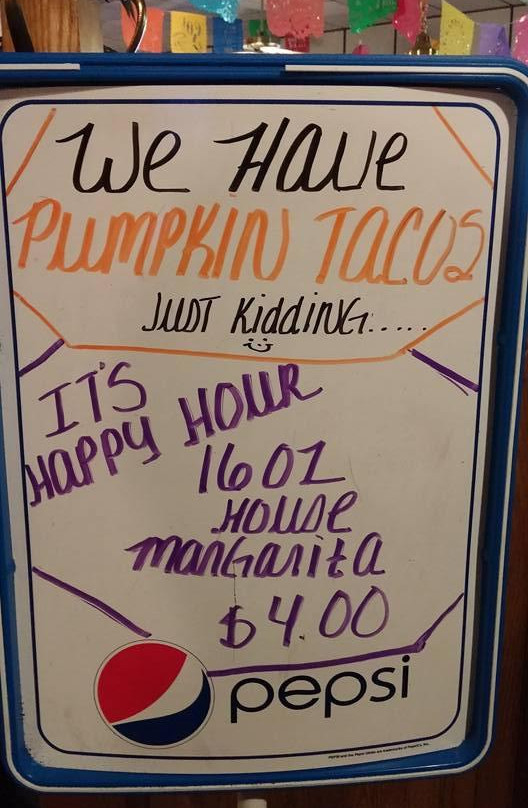 We Have
PUMPKIN TACOS
JUST KiddiNG.....
IT'S
HAPPY HOUR
16 OZ
HOUSE
margarita
$4.00
pepsi